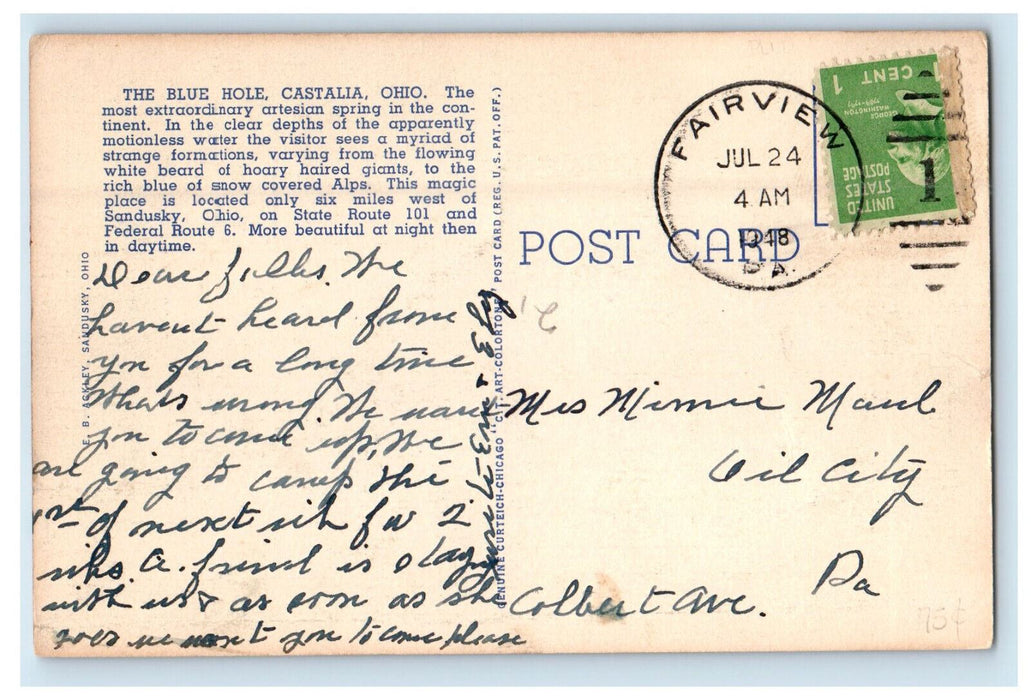 THE BLUE HOLE, CASTALIA, OHIO. The
most extraordinary artesian spring in the con-
tinent. In the clear depths of the apparently
motionless water the visitor sees a myriad of
strange formations, varying from the flowing
white beard of hoary haired giants, to the
rich blue of snow covered Alps. This magic
place is located only six miles west of
Sandusky, Ohio, on State Route 101 and
Federal Route 6. More beautiful at night then
in daytime.
Dear folks. We
havent heard from
you for a long time
Whats wrong. We want
you to come up, We
are going to camp the
1st of next for 2
wks. A. friend is
with us & as soon as she
goes we want you to come please
E. B. ACKLEY, SANDUSKY, OHIO
GENUINE CURTEICH-CHICAGO "C.T. ART-COLORTONE" POST CARD (REG. U.S. PAT. OFF.)
POST CARD
FAIRVIEW
JUL 24
4 AM
1948
PA.
1 CENT 1
GEORGE WASHINGTON
1789-1797
UNITED
STATES
POSTAGE
1
Mrs Minnie Maul
Oil City
Pa
Colbert Ave.
75¢